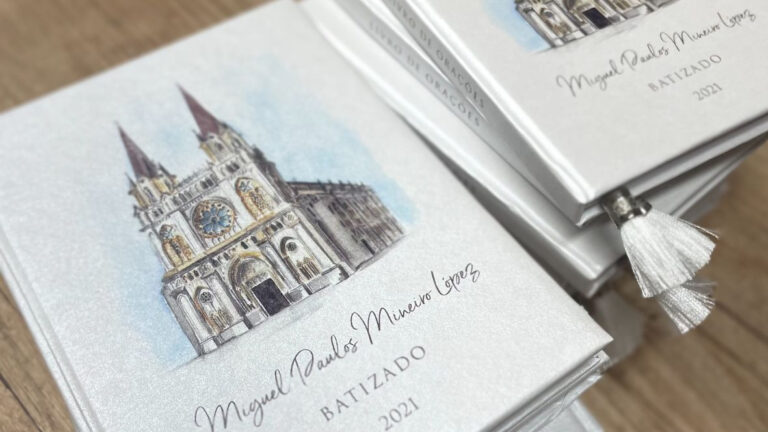 Miguel Paulos Mineiro López
BATIZADO
2021
LIVRO DE ORAÇÕES
LIVRO DE ORAÇÕES
Miguel Paulos Mineiro López
BATIZADO
2021